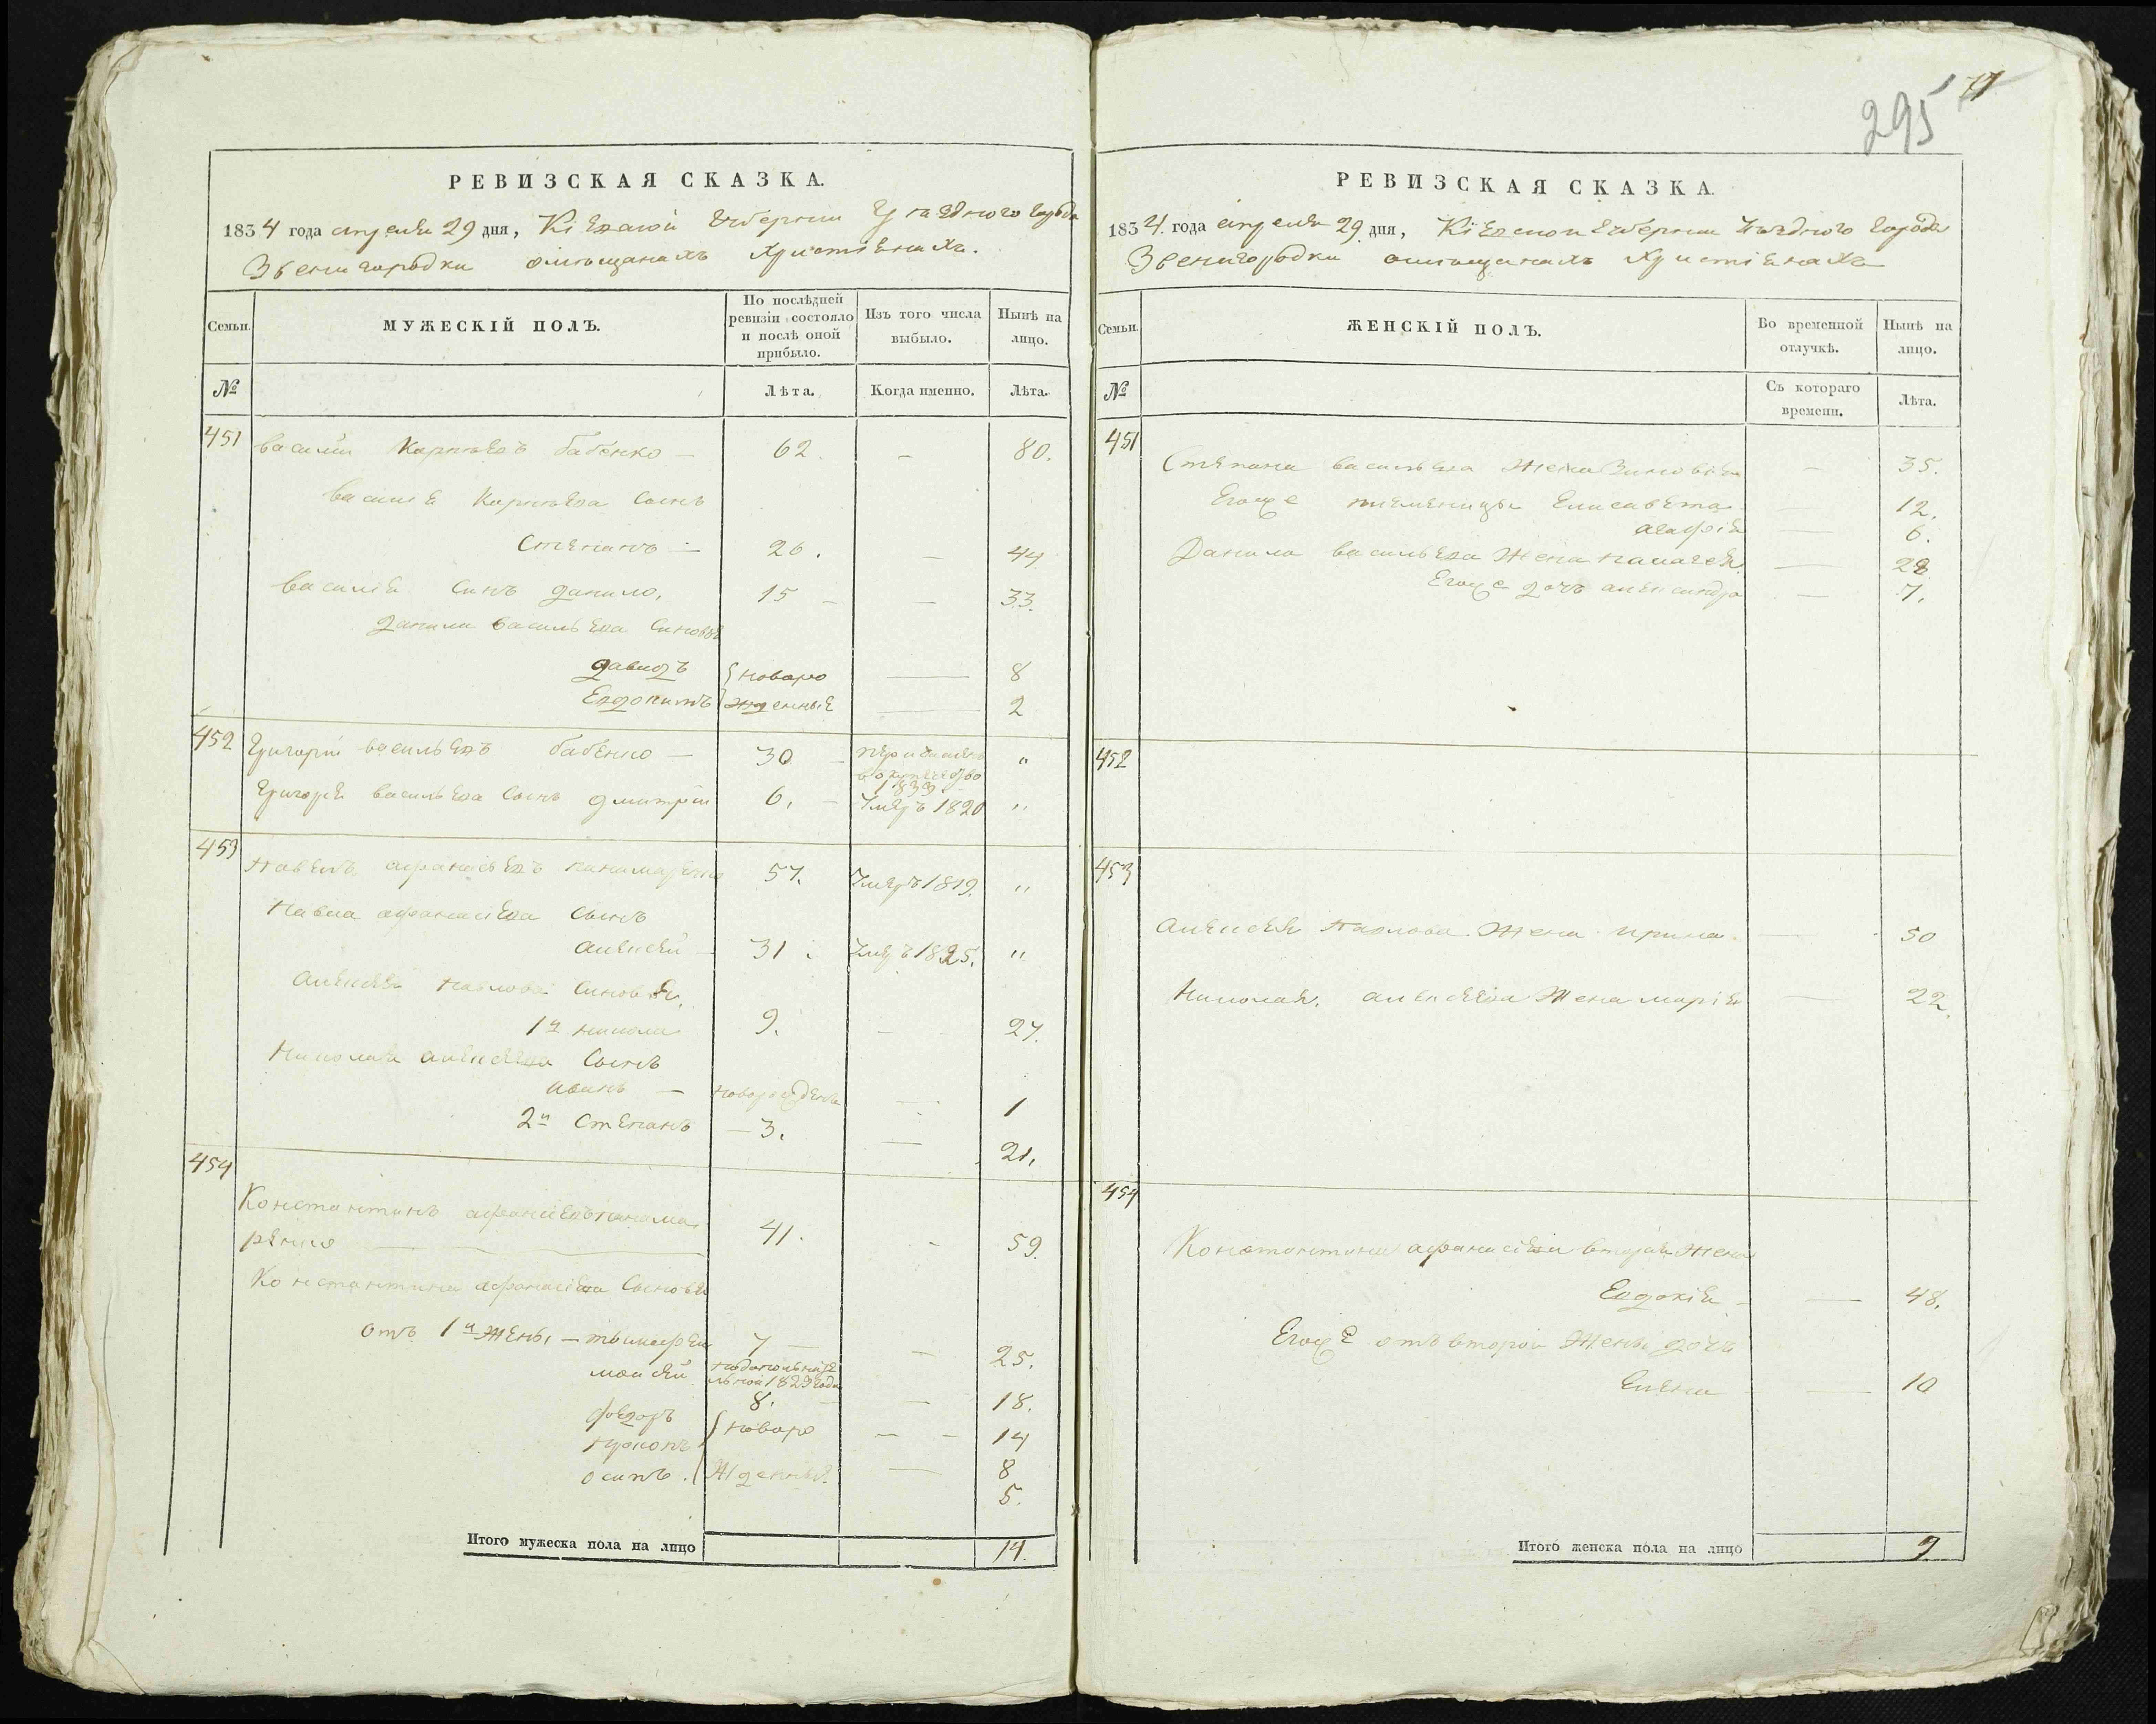 295
РЕВИЗСКАЯ СКАЗКА.
1834 года апреля 29 дня, Кіевской Губерніи Уезднаго города
Звенигородки омещанахъ Христіянахъ.
Семьи.
МУЖЕСКІЙ ПОЛЪ.
По послѣдней ревизіи состояло и послѣ оной прибыло.
Изъ того числа выбыло.
Нынѣ на лицо.
№
Лѣта.
Когда именно.
Лѣта.
451 василій Карпъевъ бабенко — 62. — 80.
василія Карпъева Сынъ
Степанъ — 26. — 44
василія Синъ данило, 15 — — 33.
данили васильева Синовья
давидъ { новоро — 8
Евдокимъ } жденные — 2
452 Григорій васильевъ бабенко — 30 — перечисленъ "
в купечество
1833
Григорія васильева Сынъ дмитрій 6, — Умеръ 1820 "
453
Павелъ афанасьевъ панамаренко 57. Умеръ 1819. "
Павла афанасіева Сынъ
алексей — 31. Умеръ 1825. "
алексея Павлова Синовья,
1й николай 9. — 27.
Николая алексеева Сынъ
иванъ — новорожденъ — 1
2й Степанъ — 3. — 21,
454
Константинъ афанасіевъ панама
ренко 41. — 59.
Константина афанасіева Сыновья
отъ 1й Жены, — тимофей 7 — 25.
моисей
1829 года
8. — 18.
федоръ { новоро — — 14
прокопъ — 8
осипъ. { жденные 5.
Итого мужеска пола на лицо 14.
РЕВИЗСКАЯ СКАЗКА.
1834 года апреля 29 дня, Кіевской Губерніи Уъзднаго города
Звенигородки омещанахъ Христіянахъ
Семьи.
ЖЕНСКІЙ ПОЛЪ.
Во временной отлучкѣ.
Нынѣ на лицо.
№
Съ котораго времени.
Лѣта.
451
Степана васильева Жена Зиновія — 35.
Егоже племеницы Елисавета — 12.
агафія — 6.
Данила васильева Жена палагея — 28
Егоже дочъ александра — 7.
452
453
алексея Павлова Жена ирина — 50
Николая, алексеева Жена марія — 22.
454
Константина афанасіева вторая Жена
Евдокія — 48.
Егоже отъ второй Жены дочь
Елена — 10
Итого женска пола на лицо 9